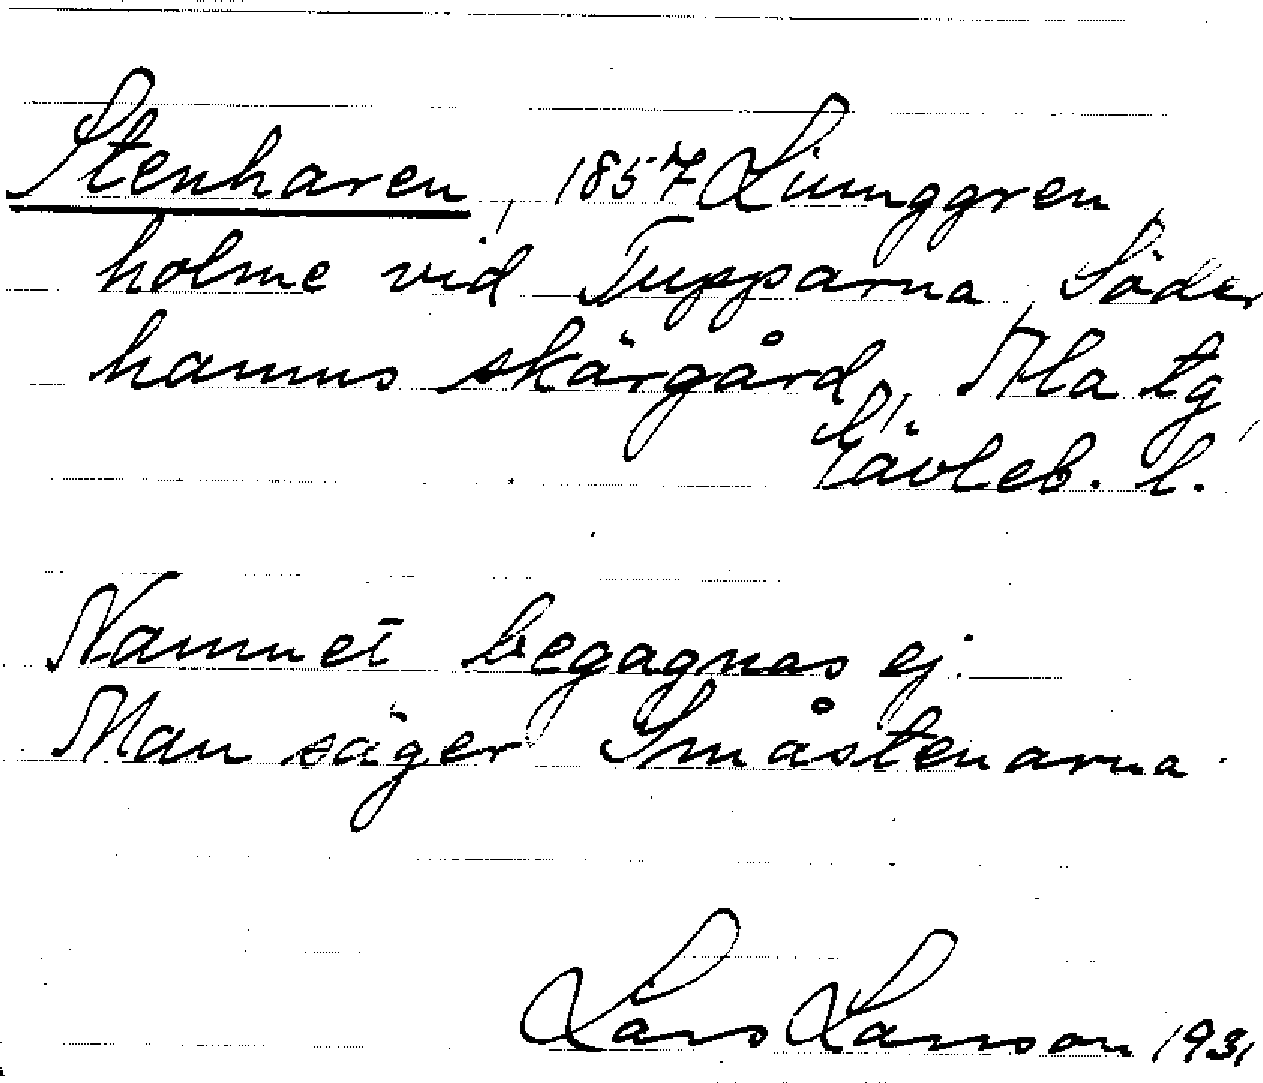 Stenharen, 1857 Ljunggren,
holme vid Tupparna, Söder
hamns skärgård, Ala tg,
Gävleb. l.
Namnet begagnas ej.
Man säger Småstenarna.
Lars Larsson 1931